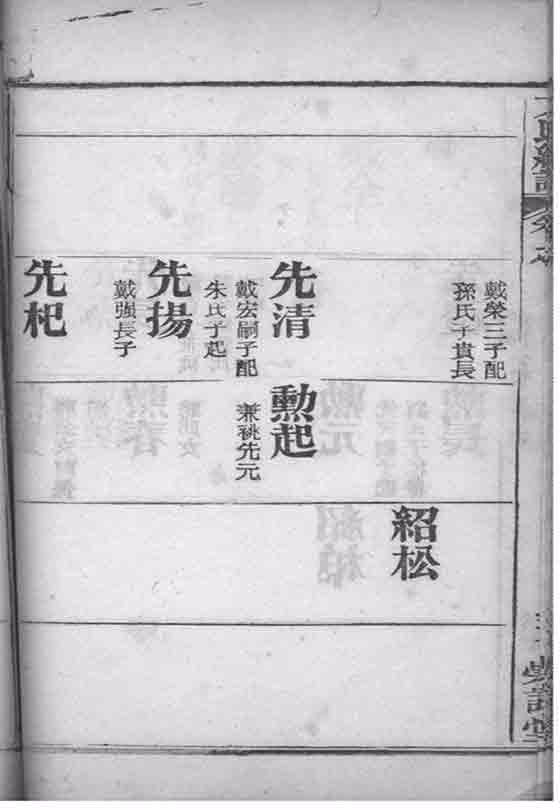 戴榮三子配
孫氏子貴長
紹松
先清
戴宏嗣子配
朱氏子起
勲起
兼祧先元
先揚
戴強長子
先杞